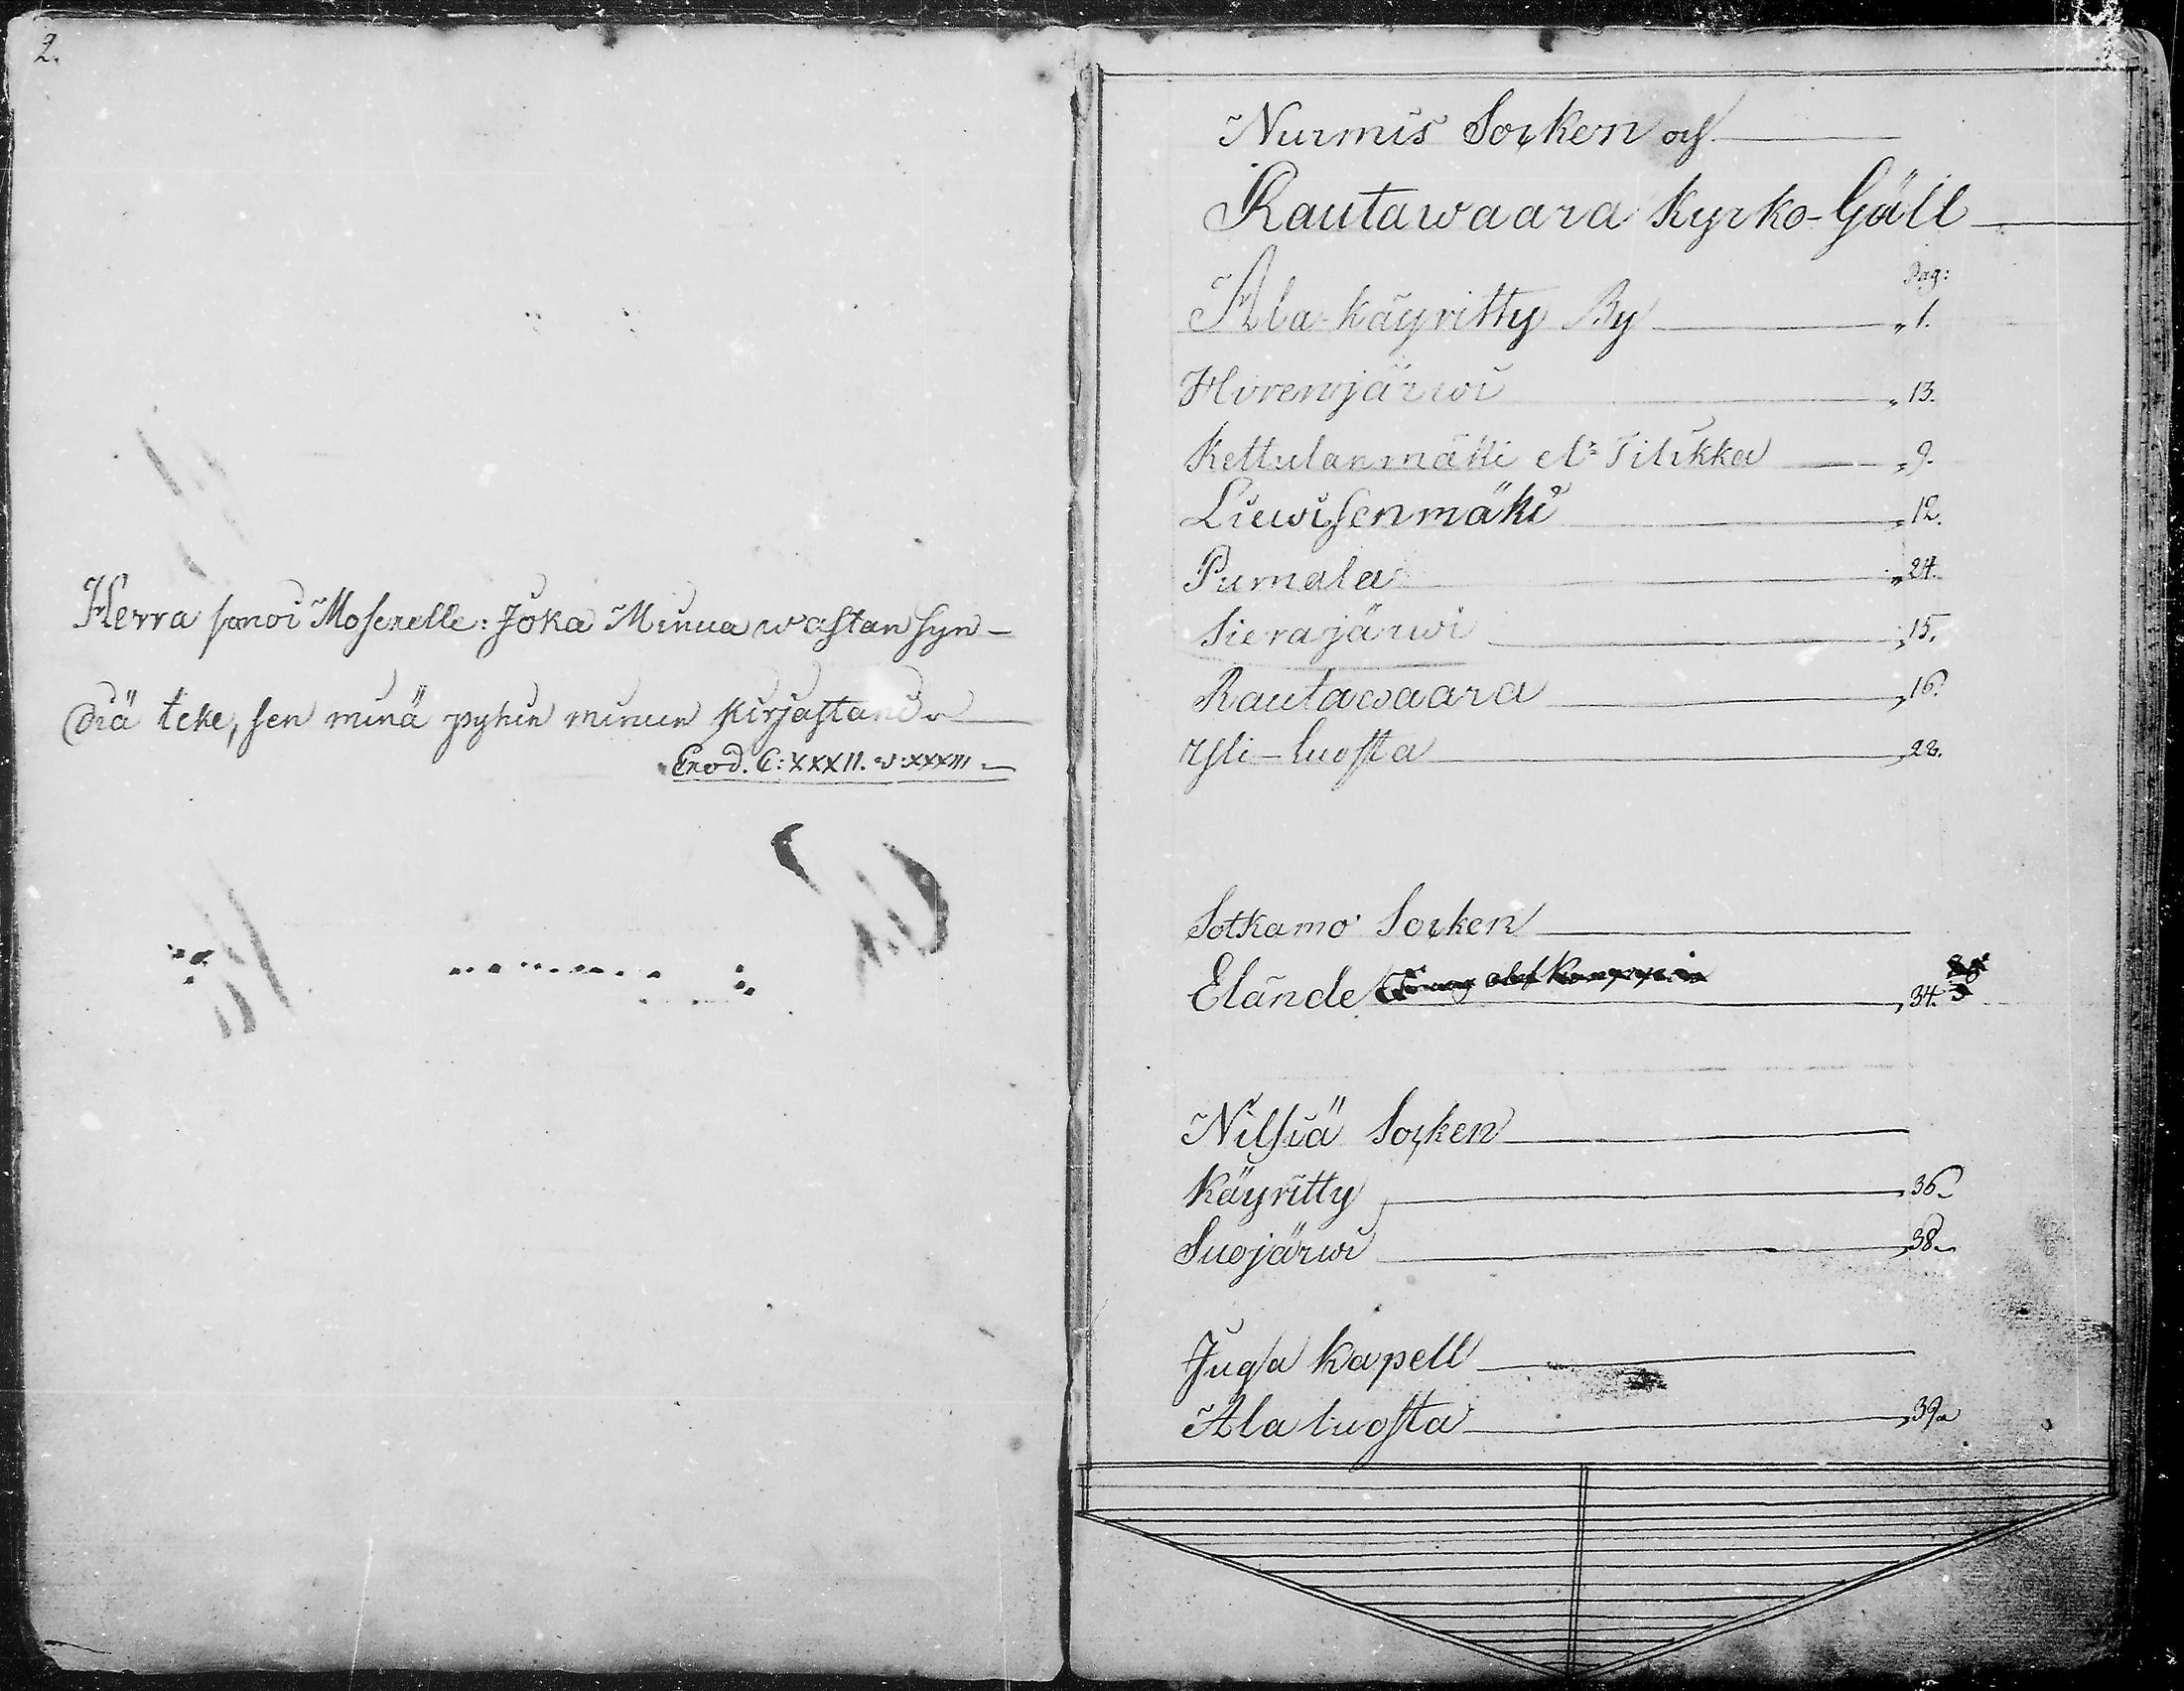 2.
Herra sanoi Mosexelle: Joka Minua wastan syn-
diä teke, sen minä pyhin minun kirjastani
Exod. C: XXXII. v: XXXIII.
Nurmis Socken och
Rautawaara Kyrko-Gäll
Pag:
Ala-Käyritty By „1.
Hirenjärwi „13.
Kettulanmäki el: Tilikka „9.
Liewisenmäki „12.
Pumala „24.
Sierajärwi „15.
Rautawaara „16.
Yli-Luosta „28.
Sotkamo Socken
Elände „34.
Nilsiä Socken
Käyritty „36.
Suojärwi „38.
Juga Kapell
Ala Luosta „39.